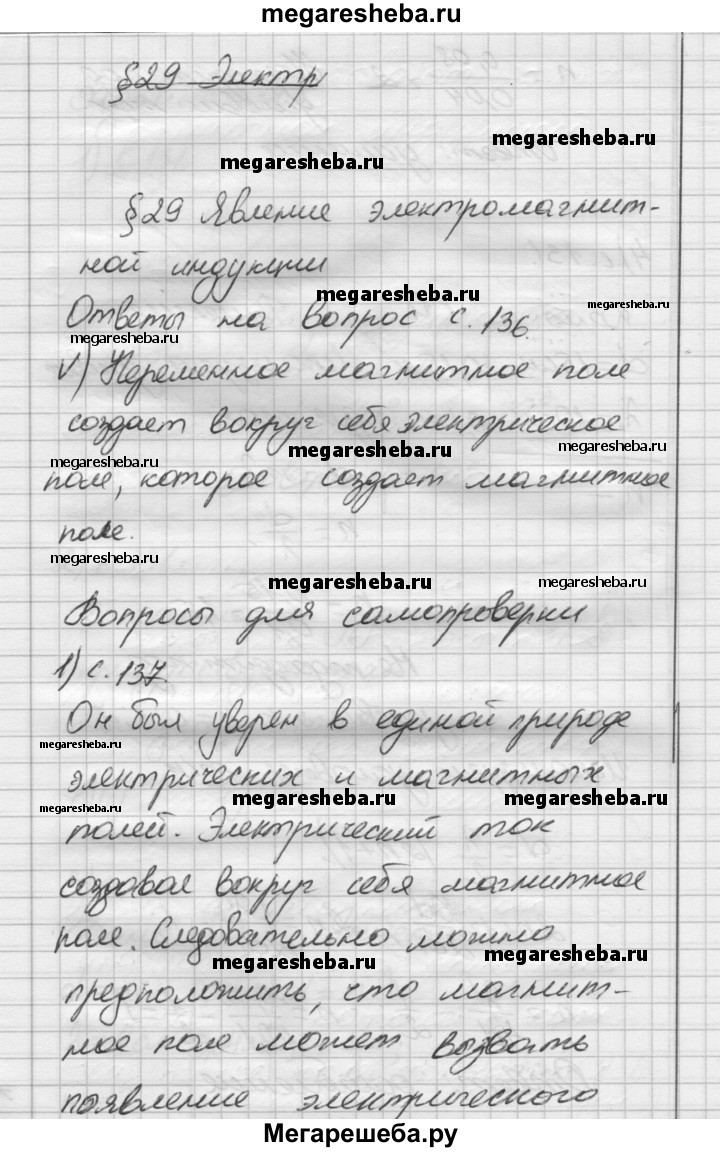 megaresheba.ru
§29 Электр
megaresheba.ru
megaresheba.ru
§29 Явление электромагнит-
ной индукции
megaresheba.ru
megaresheba.ru
Ответы на вопрос с. 136.
megaresheba.ru
V) Переменное магнитное поле
создает вокруг себя электрическое
megaresheba.ru
megaresheba.ru
megaresheba.ru
поле, которое создает магнитное
поле.
megaresheba.ru
megaresheba.ru
megaresheba.ru
Вопросы для самопроверки
1) с. 137.
Он был уверен в единой природе
megaresheba.ru
megaresheba.ru
электрических и магнитных
megaresheba.ru
megaresheba.ru
megaresheba.ru
полей. Электрический ток
создавал вокруг себя магнитное
поле. Следовательно можно
megaresheba.ru
megaresheba.ru
предположить, что магнит-
ное поле может вызвать
появление электрического
Мегарешеба.ру